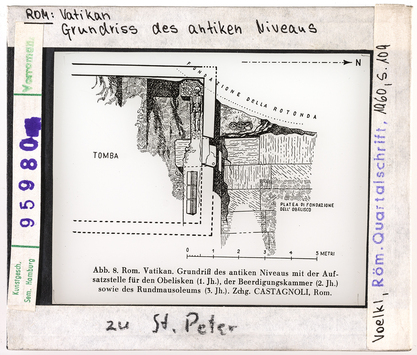 ROM: Vatikan
Grundriss des antiken Niveaus
FONDAZIONE DELLA ROTONDA
N
TOMBA
PLATEA DI FONDAZIONE
DELL' OBELISCO
0 1 2 3 4 5 METRI
Abb. 8. Rom. Vatikan. Grundriß des antiken Niveaus mit der Auf-
satzstelle für den Obelisken (1. Jh.), der Beerdigungskammer (2. Jh.)
sowie des Rundmausoleums (3. Jh.). Zchg. CASTAGNOLI, Rom.
zu St. Peter
Kunstgesch.
Sem. Hamburg
95980
Voelkl, Röm. Quartalschrift, 1960, S. 109